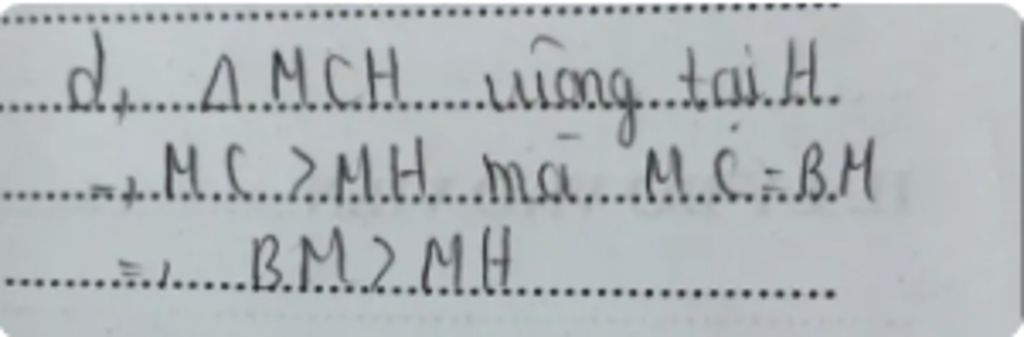 d, Δ MCH vuông tại H.
=> MC > MH mà MC = BM
=> BM > MH